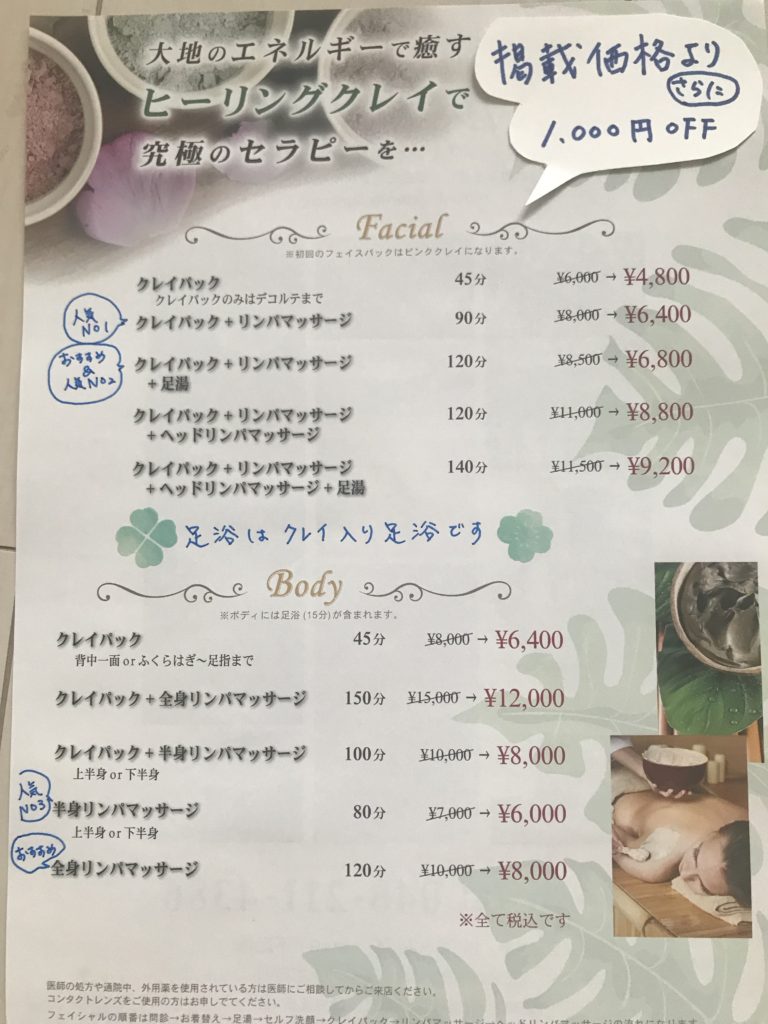 大地のエネルギーで癒す
ヒーリングクレイで
究極のセラピーを…
掲載価格より
さらに
1,000円OFF
Facial
※初回のフェイスパックはピンククレイになります。
クレイパック 45分 ¥6,000 → ¥4,800
クレイパックのみはデコルテまで
人気NO1
クレイパック + リンパマッサージ 90分 ¥8,000 → ¥6,400
おすすめ&人気NO2
クレイパック + リンパマッサージ 120分 ¥8,500 → ¥6,800
+ 足湯
クレイパック + リンパマッサージ 120分 ¥11,000 → ¥8,800
+ ヘッドリンパマッサージ
クレイパック + リンパマッサージ 140分 ¥11,500 → ¥9,200
+ ヘッドリンパマッサージ + 足湯
足浴はクレイ入り足浴です
Body
※ボディには足浴 (15分) が含まれます。
クレイパック 45分 ¥8,000 → ¥6,400
背中一面 or ふくらはぎ〜足指まで
クレイパック + 全身リンパマッサージ 150分 ¥15,000 → ¥12,000
クレイパック + 半身リンパマッサージ 100分 ¥10,000 → ¥8,000
上半身 or 下半身
人気NO3
半身リンパマッサージ 80分 ¥7,000 → ¥6,000
上半身 or 下半身
おすすめ
全身リンパマッサージ 120分 ¥10,000 → ¥8,000
※全て税込です
医師の処方や通院中、外用薬を使用されている方は医師にご相談してからご来店ください。
コンタクトレンズをご使用の方はお申しでてください。
フェイシャルの順番は問診→お着替え→足湯→セルフ洗顔→クレイパック→リンパマッサージ→ヘッドリンパマッサージの流れになります。